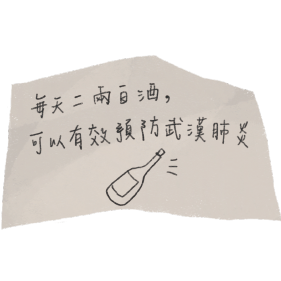 每天二兩白酒,
可以有效預防武漢肺炎